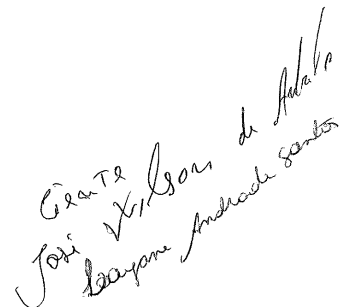 Ciente
José Wilson de Andrade
Dayane Andrade Santos